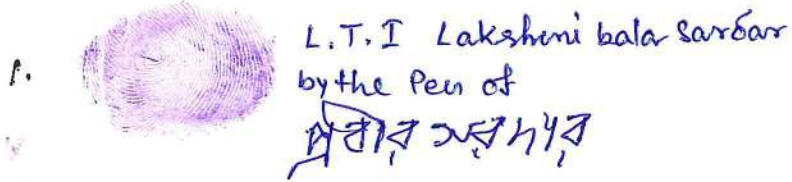 1. L.T.I Lakshmi bala Sardar
by the Pen of
প্রবীর সরদার